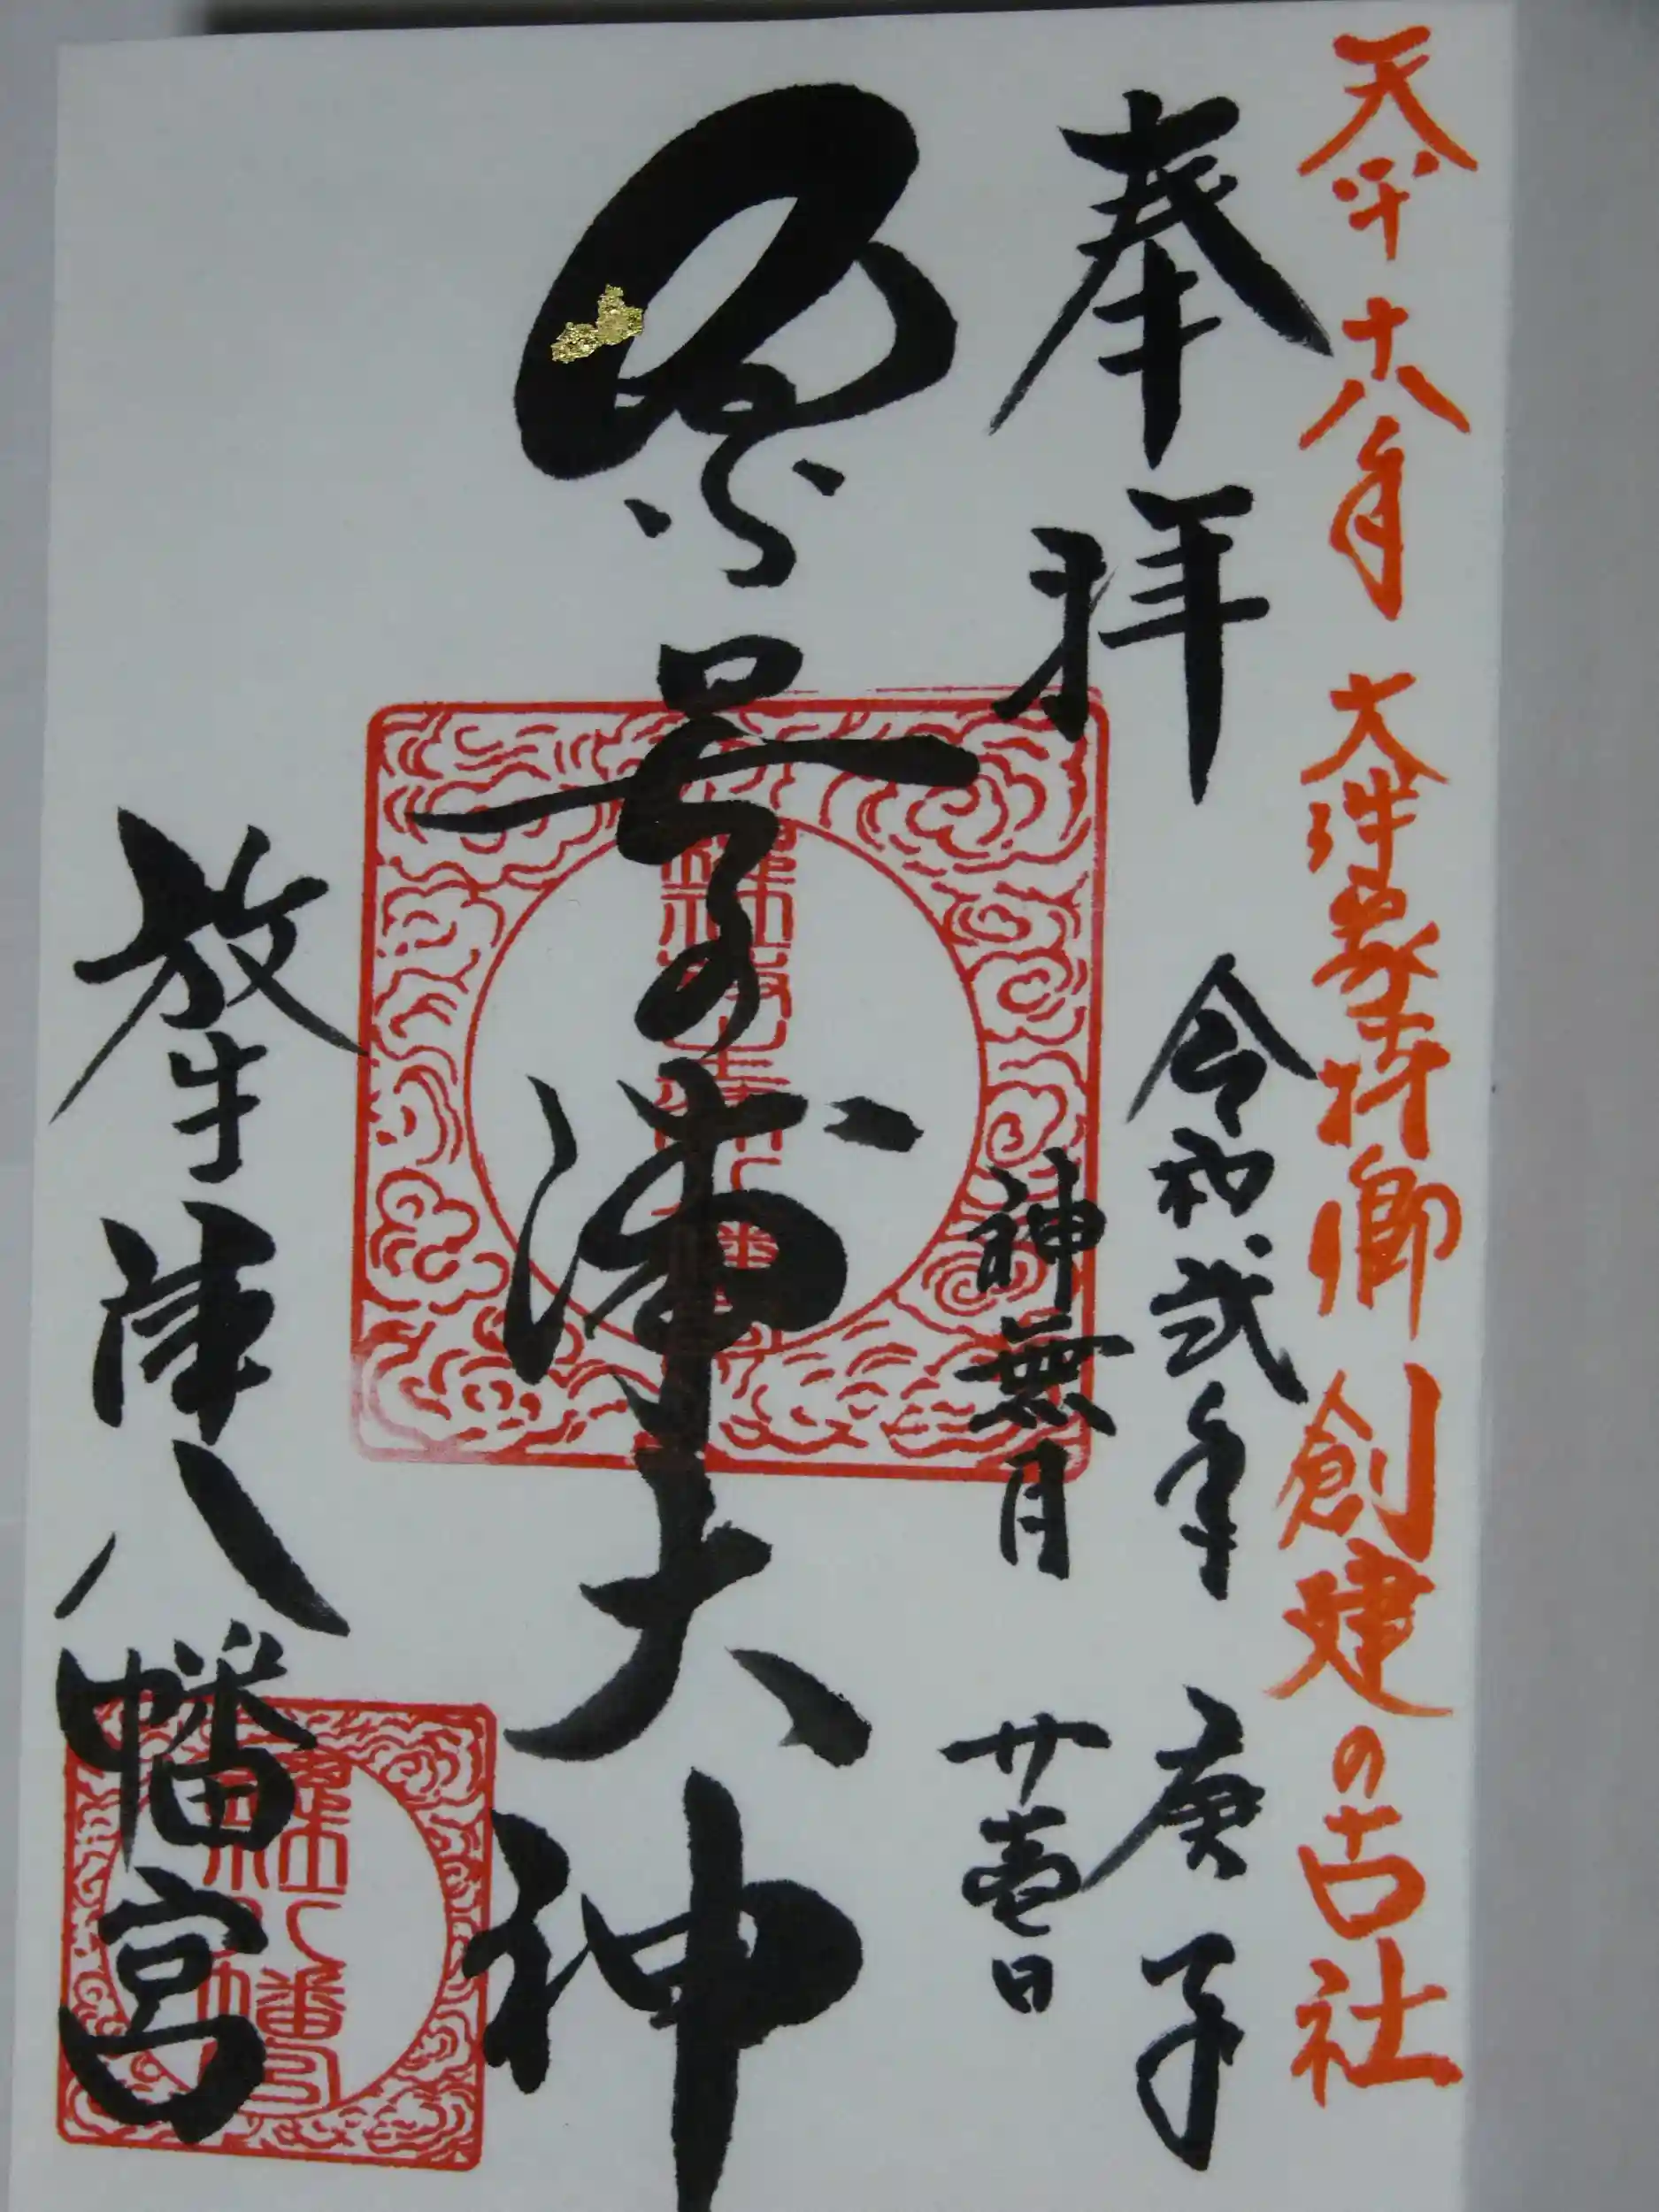 天平十八年 大伴家持卿 創建の古社
奉拝 令和弐年 庚子
神無月 廿壱日
奈呉の浦大神
放生津八幡宮